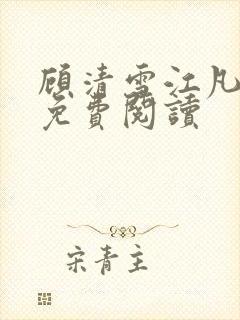 顾清雪江凡
免費閱讀
宋青主